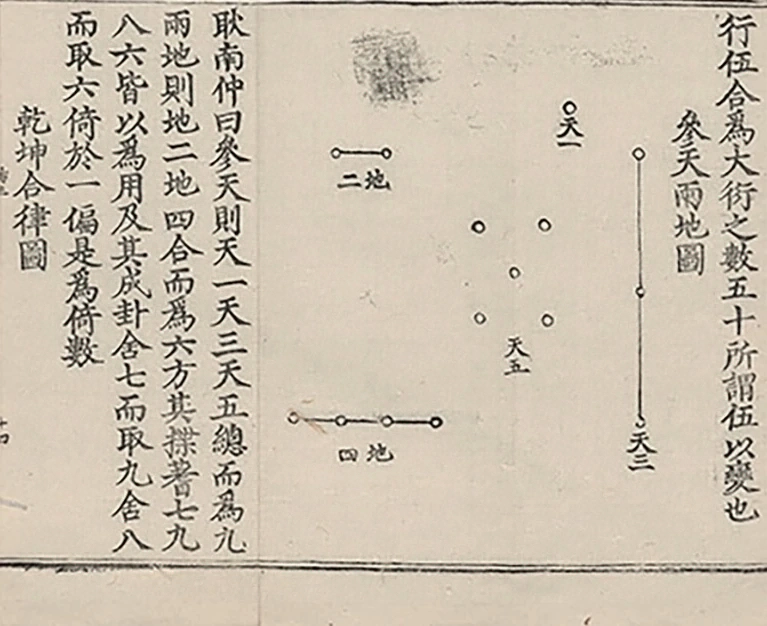 行伍合爲大衍之數五十所謂伍以變也
參天兩地圖
天一
天三
天五
二地
四地
耿南仲曰參天則天一天三天五總而爲九
兩地則地二地四合而爲六方其揲蓍七九
八六皆以爲用及其成卦舍七而取九舍八
而取六倚於一偏是爲倚數
乾坤合律圖